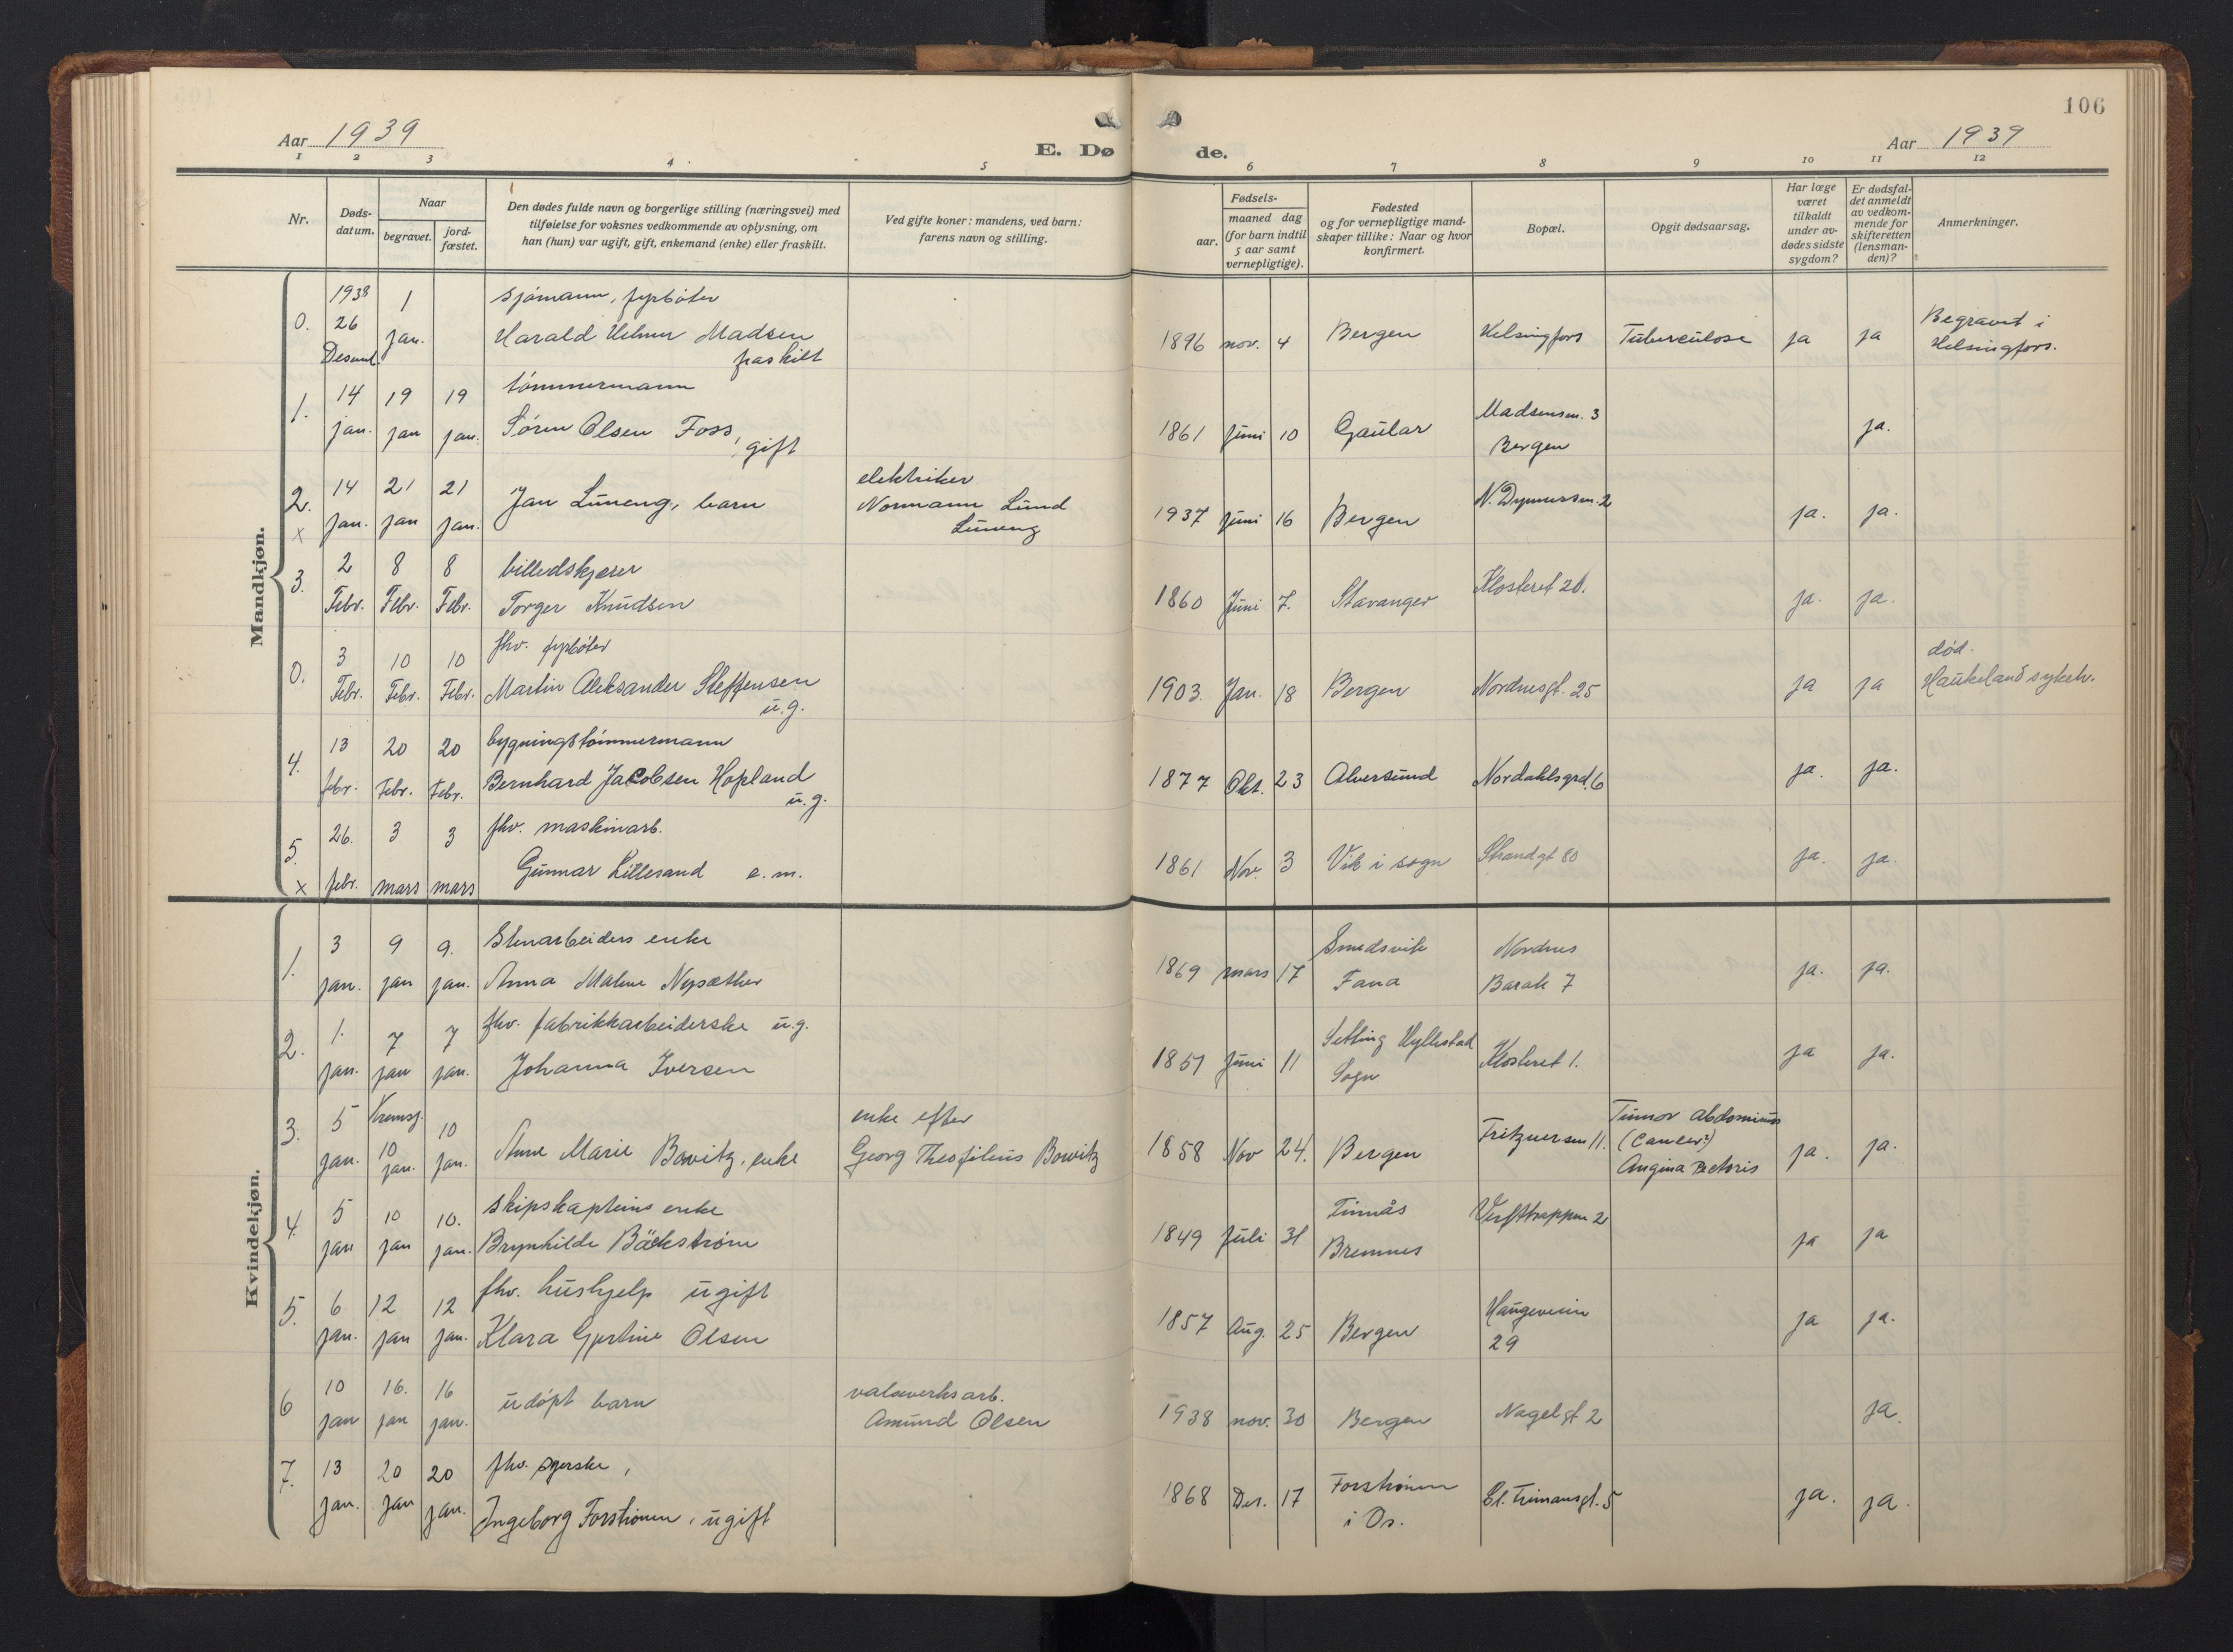 106
Aar 1939
E. Dø
de.
Aar 1939
1 2 3 4 5 6 7 8 9 10 11 12
Nr.
Døds-
datum.
Naar
begravet.
jord-
fæstet.
Den dødes fulde navn og borgerlige stilling (næringsvei) med
tilføielse for voksnes vedkommende av oplysning, om
han (hun) var ugift, gift, enkemand (enke) eller fraskilt.
Ved gifte koner: mandens, ved barn:
farens navn og stilling.
Fødsels-
aar.
maaned dag
(for barn indtil
5 aar samt
vernepligtige).
Fødested
og for vernepligtige mand-
skaper tillike: Naar og hvor
konfirmert.
Bopæl.
Opgit dødsaarsag.
Har læge
været
tilkaldt
under av-
dødes sidste
sygdom?
Er dødsfal-
det anmeldt
av vedkom-
mende for
skifteretten
(lensman-
den)?
Anmerkninger.
Mandkjøn.
0.
1938
26
Desemb.
1
jan.
sjømann, fyrbøter
Harald Helmer Madsen
fraskilt
1896 nov. 4 Bergen Helsingfors Tuberculose ja ja
Begravet i
Helsingfors.
1.
14
jan.
19
jan
19
jan.
tømmermann
Søren Olsen Foss,
gift
1861 juni 10 Gaular
Madsensm. 3
Bergen
ja.
2.
x
14
jan.
21
jan
21
jan.
Jan Luneng, barn
elektriker
Normann Lund
Luneng
1937 juni 16 Bergen N. Dynnersm. 2 ja. ja.
3.
2
Febr.
8
Febr.
8
Febr.
billedskjærer
Torger Knudsen
1860 Juni 7. Stavanger Klosteret 20. ja. ja.
0.
3
Febr.
10
Febr.
10
Febr.
fhv. fyrbøter
Martin Aleksander Steffensen
u.g.
1903. Jan. 18 Bergen Nordnesgt. 25 ja ja
død.
Haukeland sykeh.
4.
13
febr.
20
Febr.
20
Febr.
bygningstømmermann
Bernhard Jacobsen Hopland
u.g.
1877 Okt. 23 Alversund Nordahlsgrd. 6 ja. ja.
5.
x
26.
febr.
3
mars
3
mars
fhv. maskinarb.
Gunnar Lillesand e.m.
1861 Nov. 3 Vik i sogn Strandgt 80 ja. ja.
Kvindekjøn.
1.
3
jan.
9
jan
9.
jan.
Stenarbeiders enke
Anna Malene Nysæther
1869 mars 17
Smedsvik
Fana
Nordnes
Barak 7
ja. ja.
2.
1.
jan.
7
jan
7
jan.
fhv. fabrikkarbeiderske u.g.
Johanna Iversen
1851 juni 11
Setting Hyllestad
Sogn
Klosteret 1.
ja ja.
3.
5
jan.
Kremsj.
10
jan.
10
jan.
Anne Marie Bowitz, enke
enke efter
Georg Theofilus Bowitz
1858 Nov 24. Bergen Fritznersm 11.
Tumor abdominis
(Cancer?)
Angina Pectoris
ja. ja.
4.
5
jan
10
jan
10.
jan.
skipskapteins enke
Brynhilde Bäckstrøm
1849 juli 31
Finnås
Bremnes
Verfttrappen 2
ja ja
5.
6
jan.
12
jan
12
jan.
fhv. hushjelp ugift
Klara Gjertine Olsen
1857 Aug. 25 Bergen
Haugeveien
29
ja ja.
6
10
jan
16.
jan
16
jan.
udøpt barn
valseverksarb.
Amund Olsen
1938 nov. 30 Bergen Nagelgt 2 ja.
7.
13
jan.
20
jan
20
jan.
fhv. syerske,
Ingeborg Forstrønen, ugift
1868 Des. 17
Forstrønen
i Os.
ja. ja.